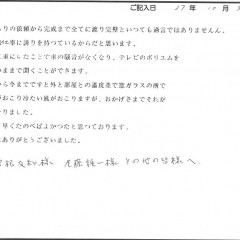 ご記入日 27年10月
りの依頼から完成まで全てに渡り完璧といっても過言ではありませんん。
が工事に誇りを持っているからだと思います。
二重にしたことで車の騒音がなくなり、テレビのボリユムを
のままで聞くことができます。
から今まですと外と部屋との温度差で窓ガラスの所で
がおこり冷たい風がおこりますが、おかげさまでそれが
りました。
早くたのべばよかつたと思っております。
にありがとうございました。
様 尾藤 様 その他の皆様へ